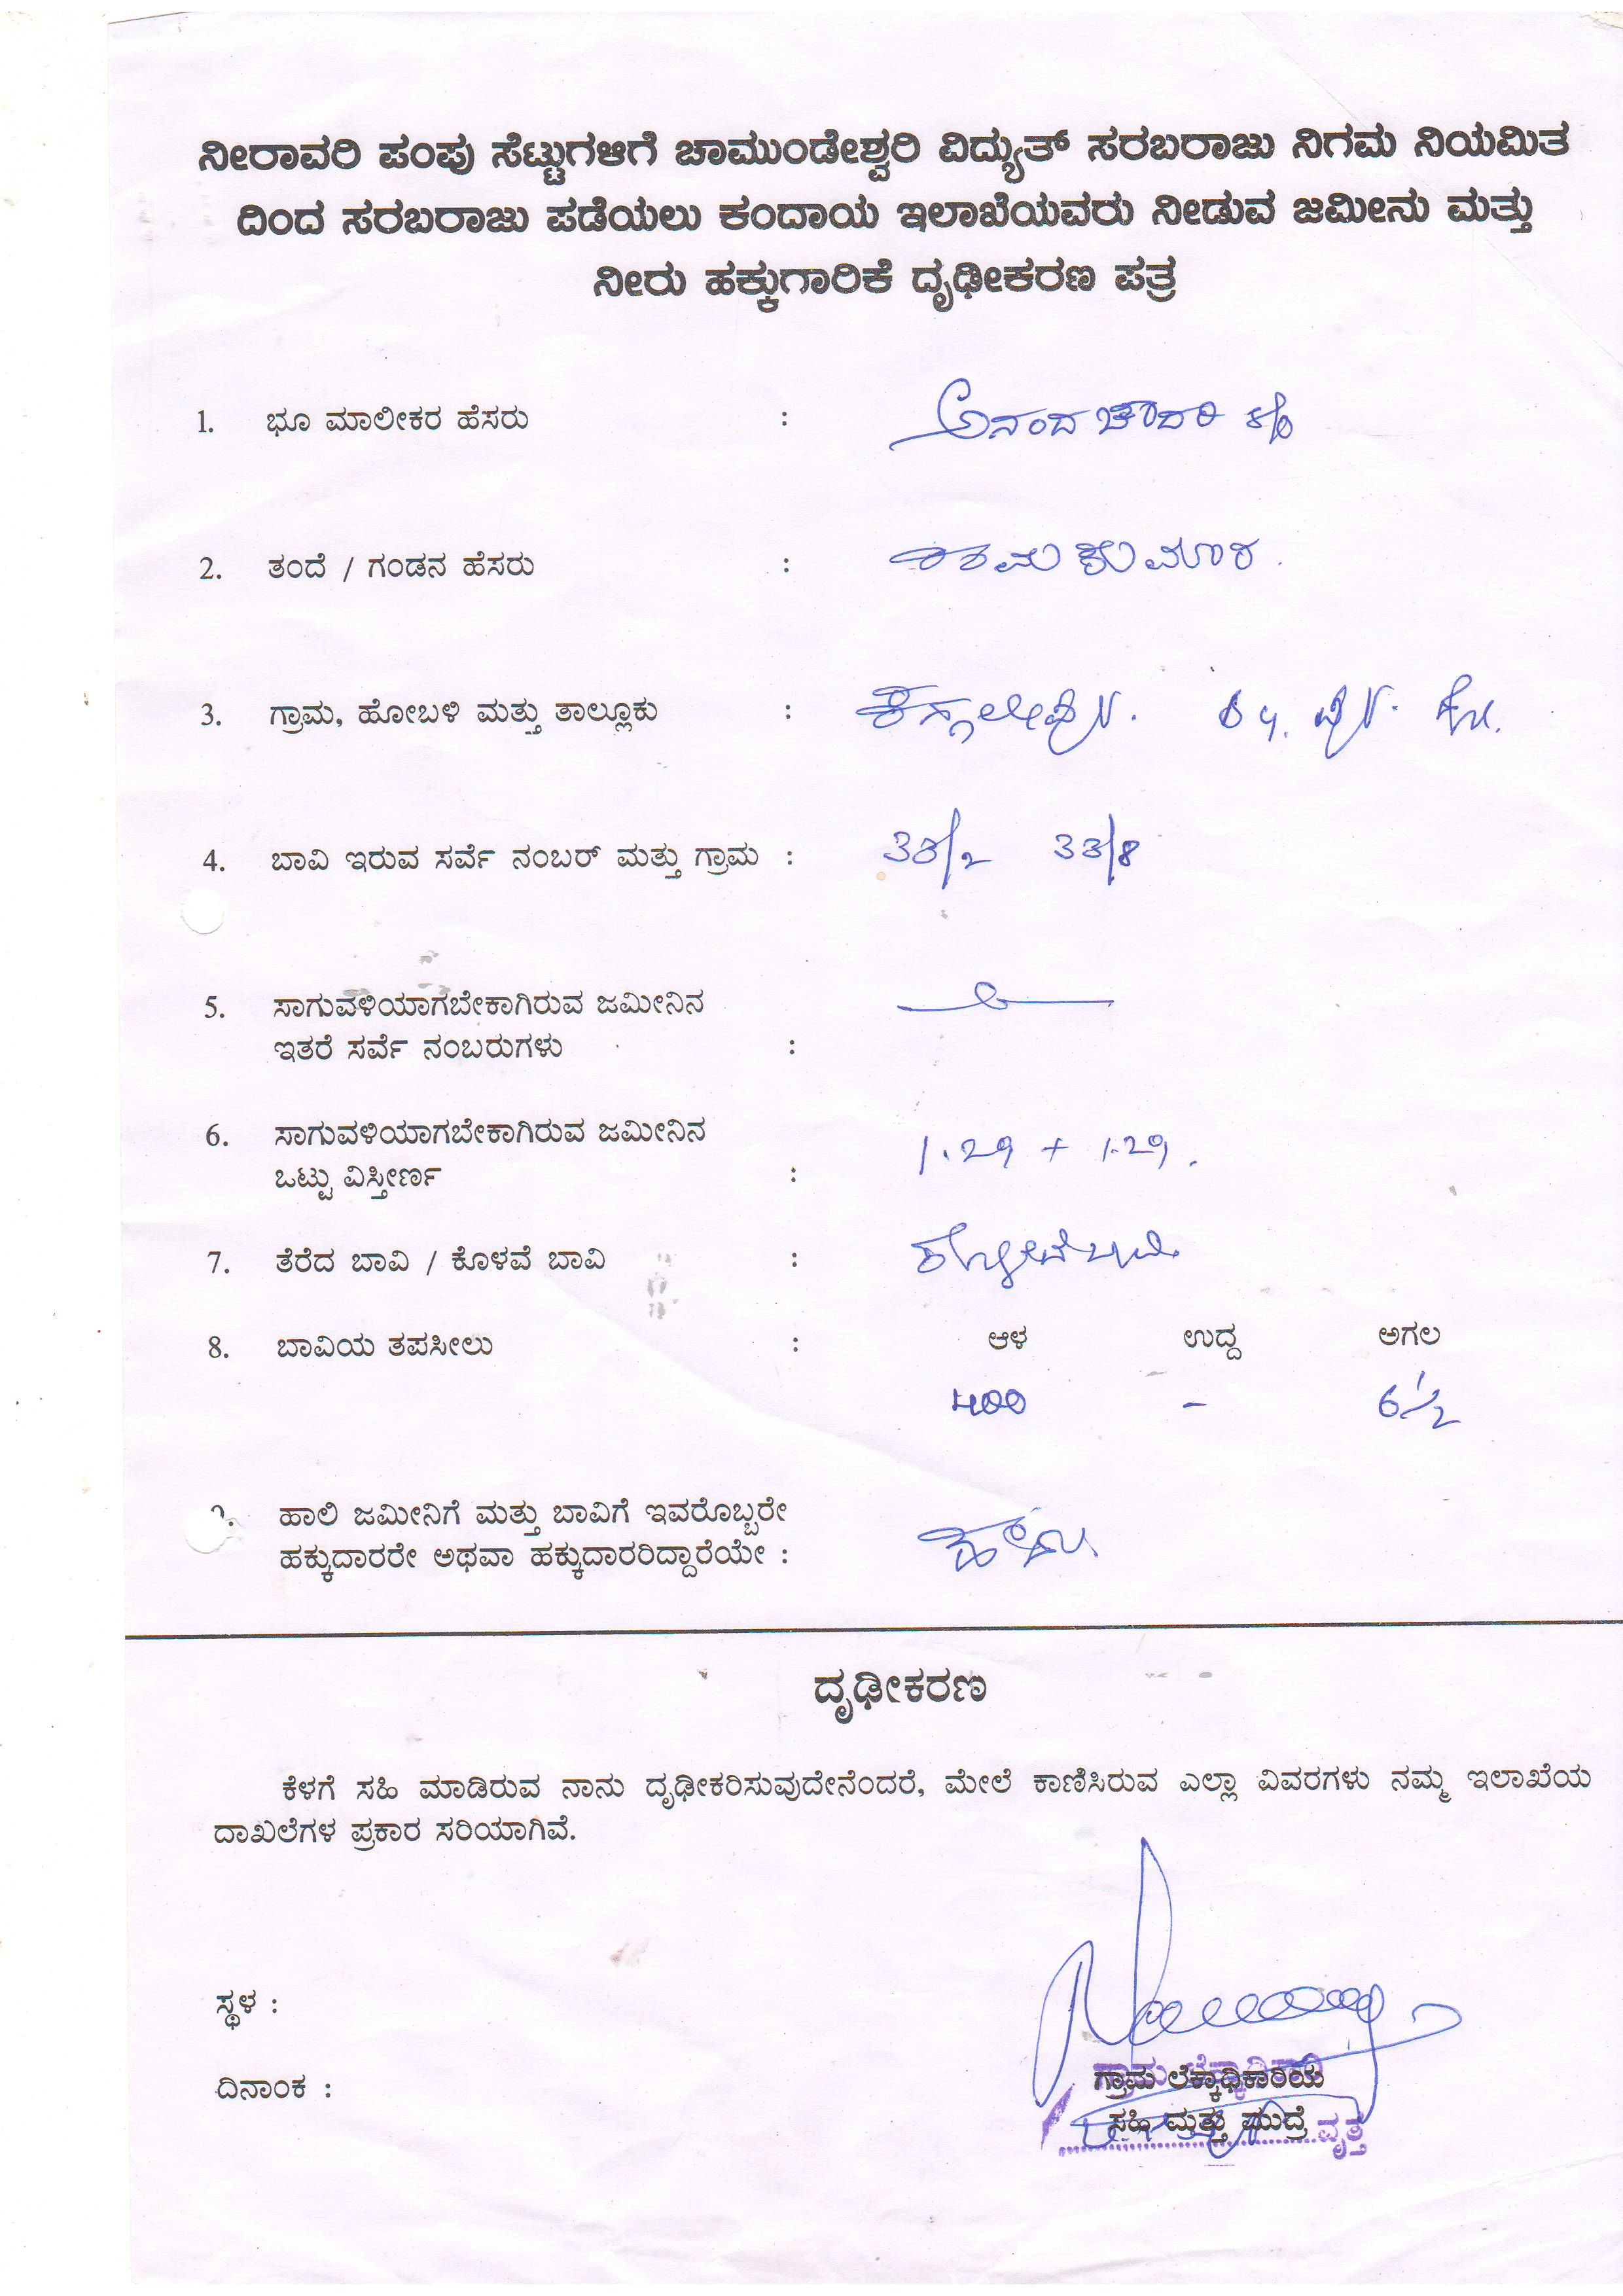 ನೀರಾವರಿ ಪಂಪು ಸೆಟ್ಟುಗಳಿಗೆ ಚಾಮುಂಡೇಶ್ವರಿ ವಿದ್ಯುತ್ ಸರಬರಾಜು ನಿಗಮ ನಿಯಮಿತ
ದಿಂದ ಸರಬರಾಜು ಪಡೆಯಲು ಕಂದಾಯ ಇಲಾಖೆಯವರು ನೀಡುವ ಜಮೀನು ಮತ್ತು
ನೀರು ಹಕ್ಕುಗಾರಿಕೆ ದೃಢೀಕರಣ ಪತ್ರ
1. ಭೂ ಮಾಲೀಕರ ಹೆಸರು :
2. ತಂದೆ / ಗಂಡನ ಹೆಸರು :
3. ಗ್ರಾಮ, ಹೋಬಳಿ ಮತ್ತು ತಾಲ್ಲೂಕು :
4. ಬಾವಿ ಇರುವ ಸರ್ವೆ ನಂಬರ್ ಮತ್ತು ಗ್ರಾಮ : 33/2 33/8
5. ಸಾಗುವಳಿಯಾಗಬೇಕಾಗಿರುವ ಜಮೀನಿನ
ಇತರೆ ಸರ್ವೆ ನಂಬರುಗಳು :
6. ಸಾಗುವಳಿಯಾಗಬೇಕಾಗಿರುವ ಜಮೀನಿನ
ಒಟ್ಟು ವಿಸ್ತೀರ್ಣ : 1.29 + 1.29.
7. ತೆರೆದ ಬಾವಿ / ಕೊಳವೆ ಬಾವಿ :
8. ಬಾವಿಯ ತಪಸೀಲು : ಆಳ ಉದ್ದ ಅಗಲ
400 - 6 1/2
ಹಾಲಿ ಜಮೀನಿಗೆ ಮತ್ತು ಬಾವಿಗೆ ಇವರೊಬ್ಬರೇ
ಹಕ್ಕುದಾರರೇ ಅಥವಾ ಹಕ್ಕುದಾರರಿದ್ದಾರೆಯೇ :
ದೃಢೀಕರಣ
ಕೆಳಗೆ ಸಹಿ ಮಾಡಿರುವ ನಾನು ದೃಢೀಕರಿಸುವುದೇನೆಂದರೆ, ಮೇಲೆ ಕಾಣಿಸಿರುವ ಎಲ್ಲಾ ವಿವರಗಳು ನಮ್ಮ ಇಲಾಖೆಯ
ದಾಖಲೆಗಳ ಪ್ರಕಾರ ಸರಿಯಾಗಿವೆ.
ಸ್ಥಳ :
ದಿನಾಂಕ :
ಗ್ರಾಮ ಲೆಕ್ಕಾಧಿಕಾರಿಯ
ಸಹಿ ಮತ್ತು ಮುದ್ರೆ ವೃತ್ತ